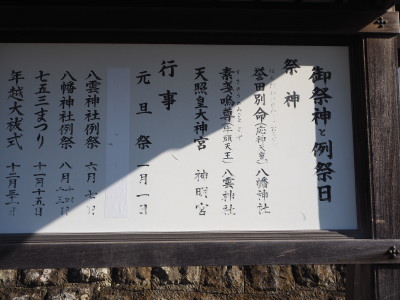 御祭神と例祭日
祭神
誉田別命(応神天皇) 八幡神社
素戔嗚尊(牛頭天王) 八雲神社
天照皇大神宮 神明宮
行事
元旦祭 一月一日
八雲神社例祭 六月七
八幡神社例祭 八月
七五三まつり 十一月十五日
年越大祓式 十二月三十一